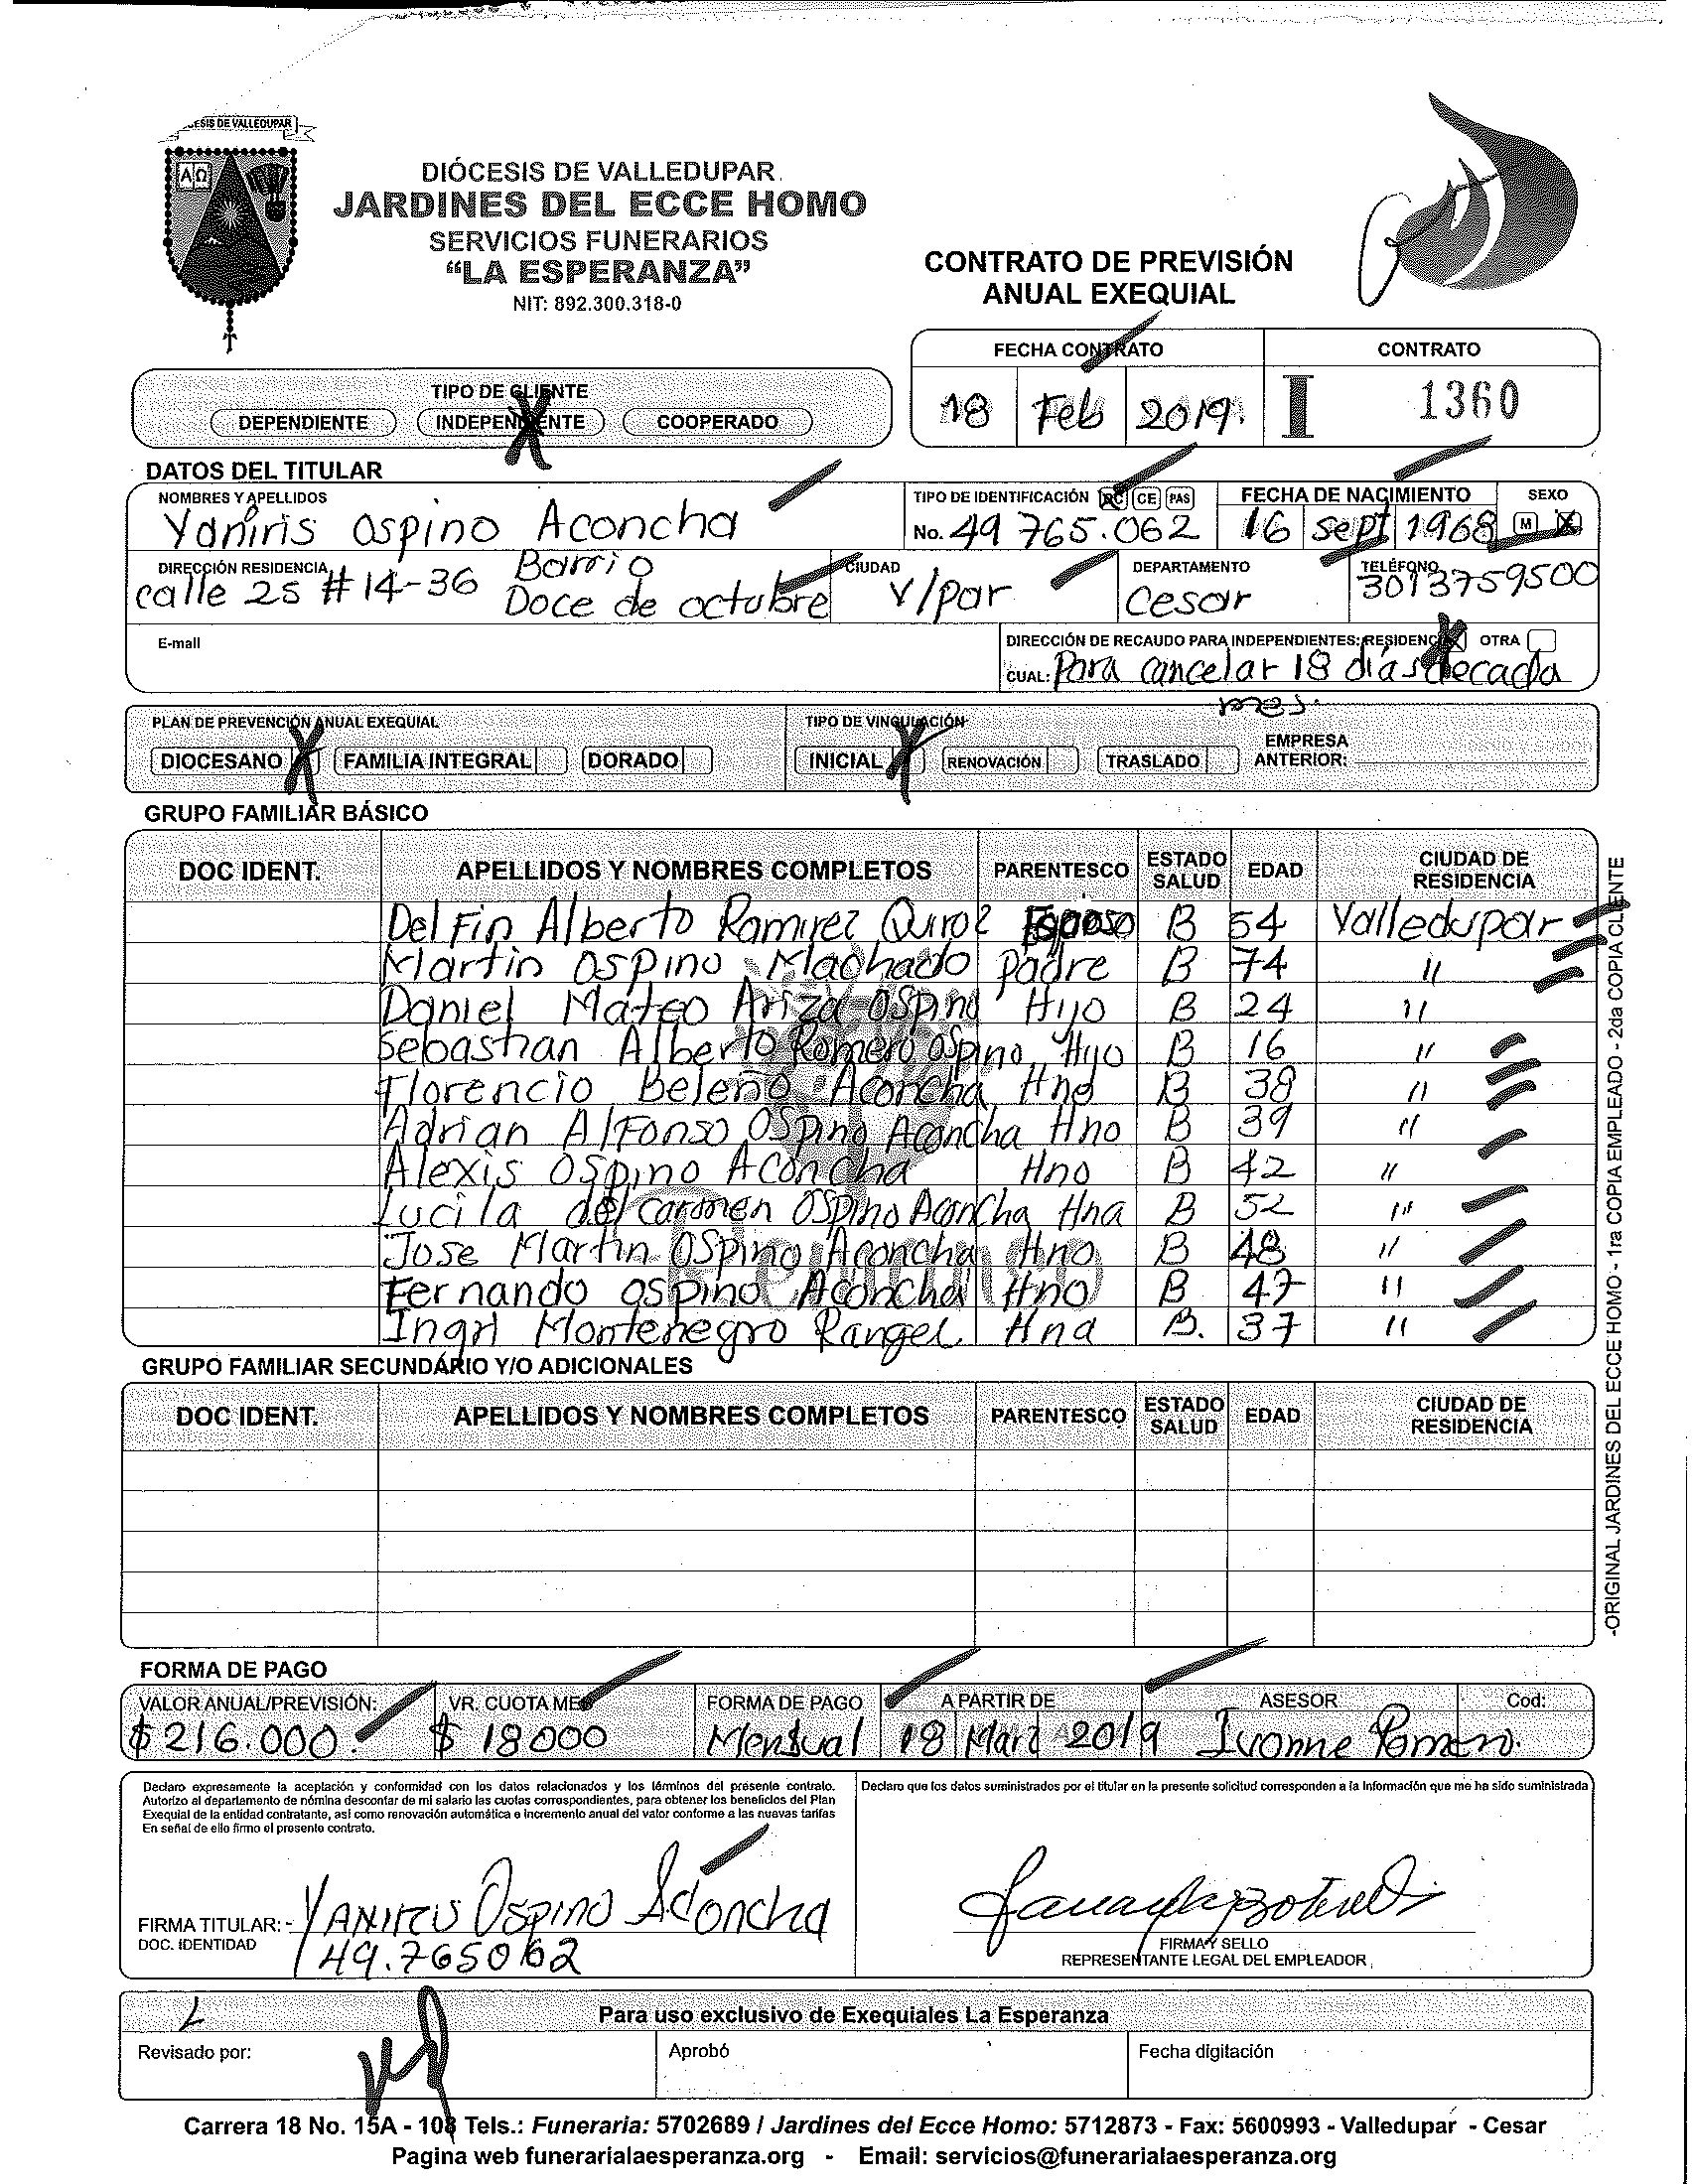 DIÓCESIS DE VALLEDUPAR
DIÓCESIS DE VALLEDUPAR
JARDINES DEL ECCE HOMO
SERVICIOS FUNERARIOS
“LA ESPERANZA”
NIT: 892.300.318-0
CONTRATO DE PREVISIÓN
ANUAL EXEQUIAL
FECHA CONTRATO CONTRATO
18 Feb 2019. I 1360
TIPO DE CLIENTE
DEPENDIENTE INDEPENDIENTE X COOPERADO
DATOS DEL TITULAR
NOMBRES Y APELLIDOS TIPO DE IDENTIFICACIÓN CE PAS FECHA DE NACIMIENTO SEXO
Yaniris Ospino Aconcha No. 49 765.062 16 sept 1968 M X
DIRECCIÓN RESIDENCIA CIUDAD DEPARTAMENTO TELÉFONO
calle 25 # 14-36 Barrio Doce de octubre V/par Cesar 3013759500
E-mail DIRECCIÓN DE RECAUDO PARA INDEPENDIENTES: RESIDENCIA X OTRA
CUAL: Para cancelar 18 días de cada
mes.
PLAN DE PREVENCIÓN ANUAL EXEQUIAL TIPO DE VINCULACIÓN
DIOCESANO X FAMILIA INTEGRAL DORADO INICIAL X RENOVACIÓN TRASLADO EMPRESA ANTERIOR:
GRUPO FAMILIAR BÁSICO
DOC IDENT. APELLIDOS Y NOMBRES COMPLETOS PARENTESCO ESTADO SALUD EDAD CIUDAD DE RESIDENCIA
Delfin Alberto Ramirez Quiroz Esposo B 54 Valledupar
Martin Ospino Machado padre B 74 "
Daniel Mateo Ariza Ospino Hijo B 24 "
Sebastian Alberto Romero Ospino Hijo B 16 "
Florencio Beleño Aconcha Hno B 38 "
Adrian Alfonso Ospino Aconcha Hno B 39 "
Alexis Ospino Aconcha Hno B 42 "
Lucila del carmen Ospino Aconcha Hna B 52 "
Jose Martin Ospino Aconcha Hno B 48 "
Fernando Ospino Aconcha Hno B 47 "
Ingri Montenegro Rangel Hna B. 37 "
GRUPO FAMILIAR SECUNDARIO Y/O ADICIONALES
DOC IDENT. APELLIDOS Y NOMBRES COMPLETOS PARENTESCO ESTADO SALUD EDAD CIUDAD DE RESIDENCIA
-ORIGINAL JARDINES DEL ECCE HOMO - 1ra COPIA EMPLEADO - 2da COPIA CLIENTE
FORMA DE PAGO
VALOR ANUAL/PREVISIÓN: VR. CUOTA MES FORMA DE PAGO A PARTIR DE ASESOR Cod:
$ 216.000. $ 18000 Mensual 18 Marz 2019 Ivonne Romero.
Declaro expresamente la aceptación y conformidad con los datos relacionados y los términos del presente contrato.
Autorizo al departamento de nómina descontar de mi salario las cuotas correspondientes, para obtener los beneficios del Plan
Exequial de la entidad contratante, así como renovación automática e incremento anual del valor conforme a las nuevas tarifas
En señal de ello firmo el presente contrato.
Declaro que los datos suministrados por el titular en la presente solicitud corresponden a la información que me ha sido suministrada
FIRMA TITULAR: - Yaniris Ospino Aconcha
DOC. IDENTIDAD 49.765062
FIRMA Y SELLO
REPRESENTANTE LEGAL DEL EMPLEADOR
Para uso exclusivo de Exequiales La Esperanza
Revisado por: Aprobó Fecha digitación
Carrera 18 No. 15A - 108 Tels.: Funeraria: 5702689 / Jardines del Ecce Homo: 5712873 - Fax: 5600993 - Valledupar - Cesar
Pagina web funerarialaesperanza.org - Email: servicios@funerarialaesperanza.org